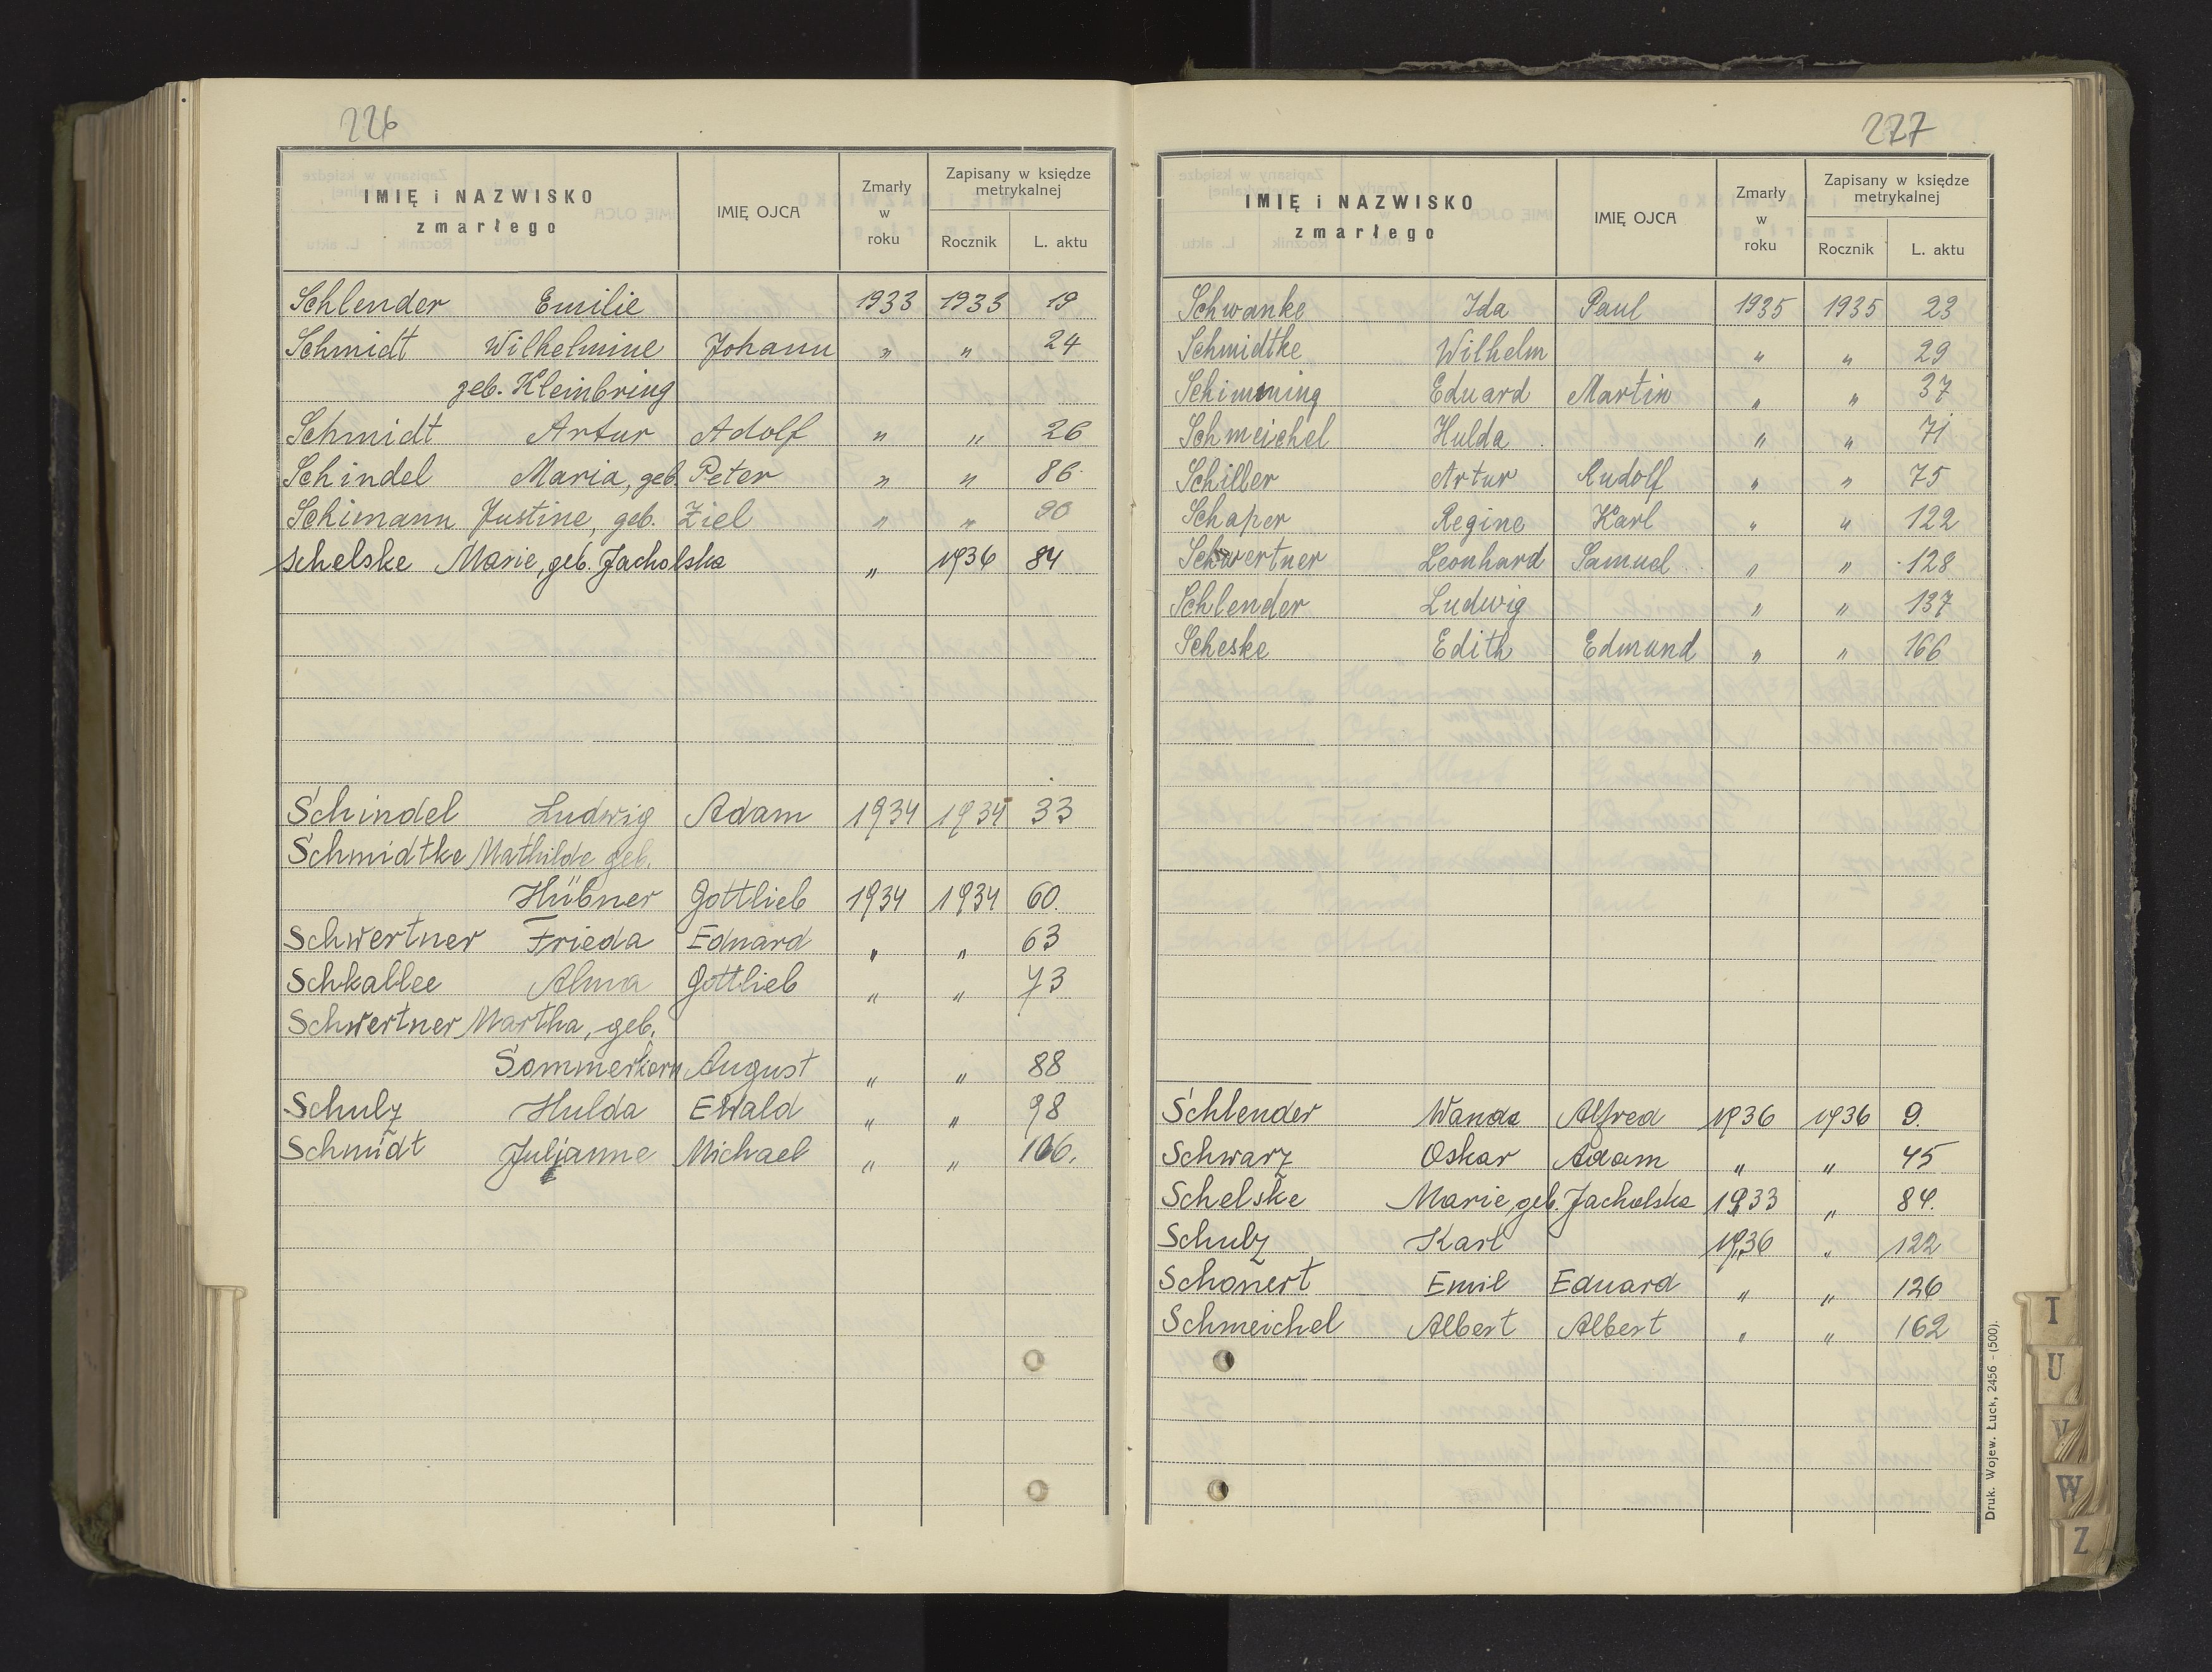 226
IMIĘ i NAZWISKO zmarłego IMIĘ OJCA Zmarły w roku Zapisany w księdze metrykalnej Rocznik L. aktu
Schlender Emilie 1933 1933 19
Schmidt Wilhelmine Johann " " 24
geb. Kleinbring
Schmidt Artur Adolf " " 26
Schindel Maria, geb. Peter " " 86.
Schimann Justine, geb. Ziel " " 90
Schelske Marie, geb. Jacholska " 1936 84
Schindel Ludwig Adam 1934 1934 33
Schmidtke Mathilde geb.
Hübner Gottlieb 1934 1934 60.
Schwertner Frieda Eduard " " 63
Schkallee Alma Gottlieb " " 73
Schwertner Martha, geb.
Sommerkorn August " " 88
Schulz Hulda Ewald " " 98
Schmidt Julianne Michael " " 106.
227
IMIĘ i NAZWISKO zmarłego IMIĘ OJCA Zmarły w roku Zapisany w księdze metrykalnej Rocznik L. aktu
Schwanke Ida Paul 1935 1935 23
Schmidtke Wilhelm " " 29
Schimming Eduard Martin " " 37
Schmeichel Hulda " " 71
Schiller Artur Rudolf " " 75
Schaper Regine Karl " " 122
Schwertner Leonhard Samuel " " 128
Schlender Ludwig " " 137
Scheske Edith Edmund " " 166
Schlender Wanda Alfred 1936 1936 9.
Schwarz Oskar Adam " " 45
Schelske Marie, geb. Jacholska 1933 " 84.
Schulz Karl 1936 " 122
Schonert Emil Eduard " " 126
Schmeichel Albert Albert " " 162
Druk. Wojew. Łuck, 2456 - (500).
T
U
V
W
Z